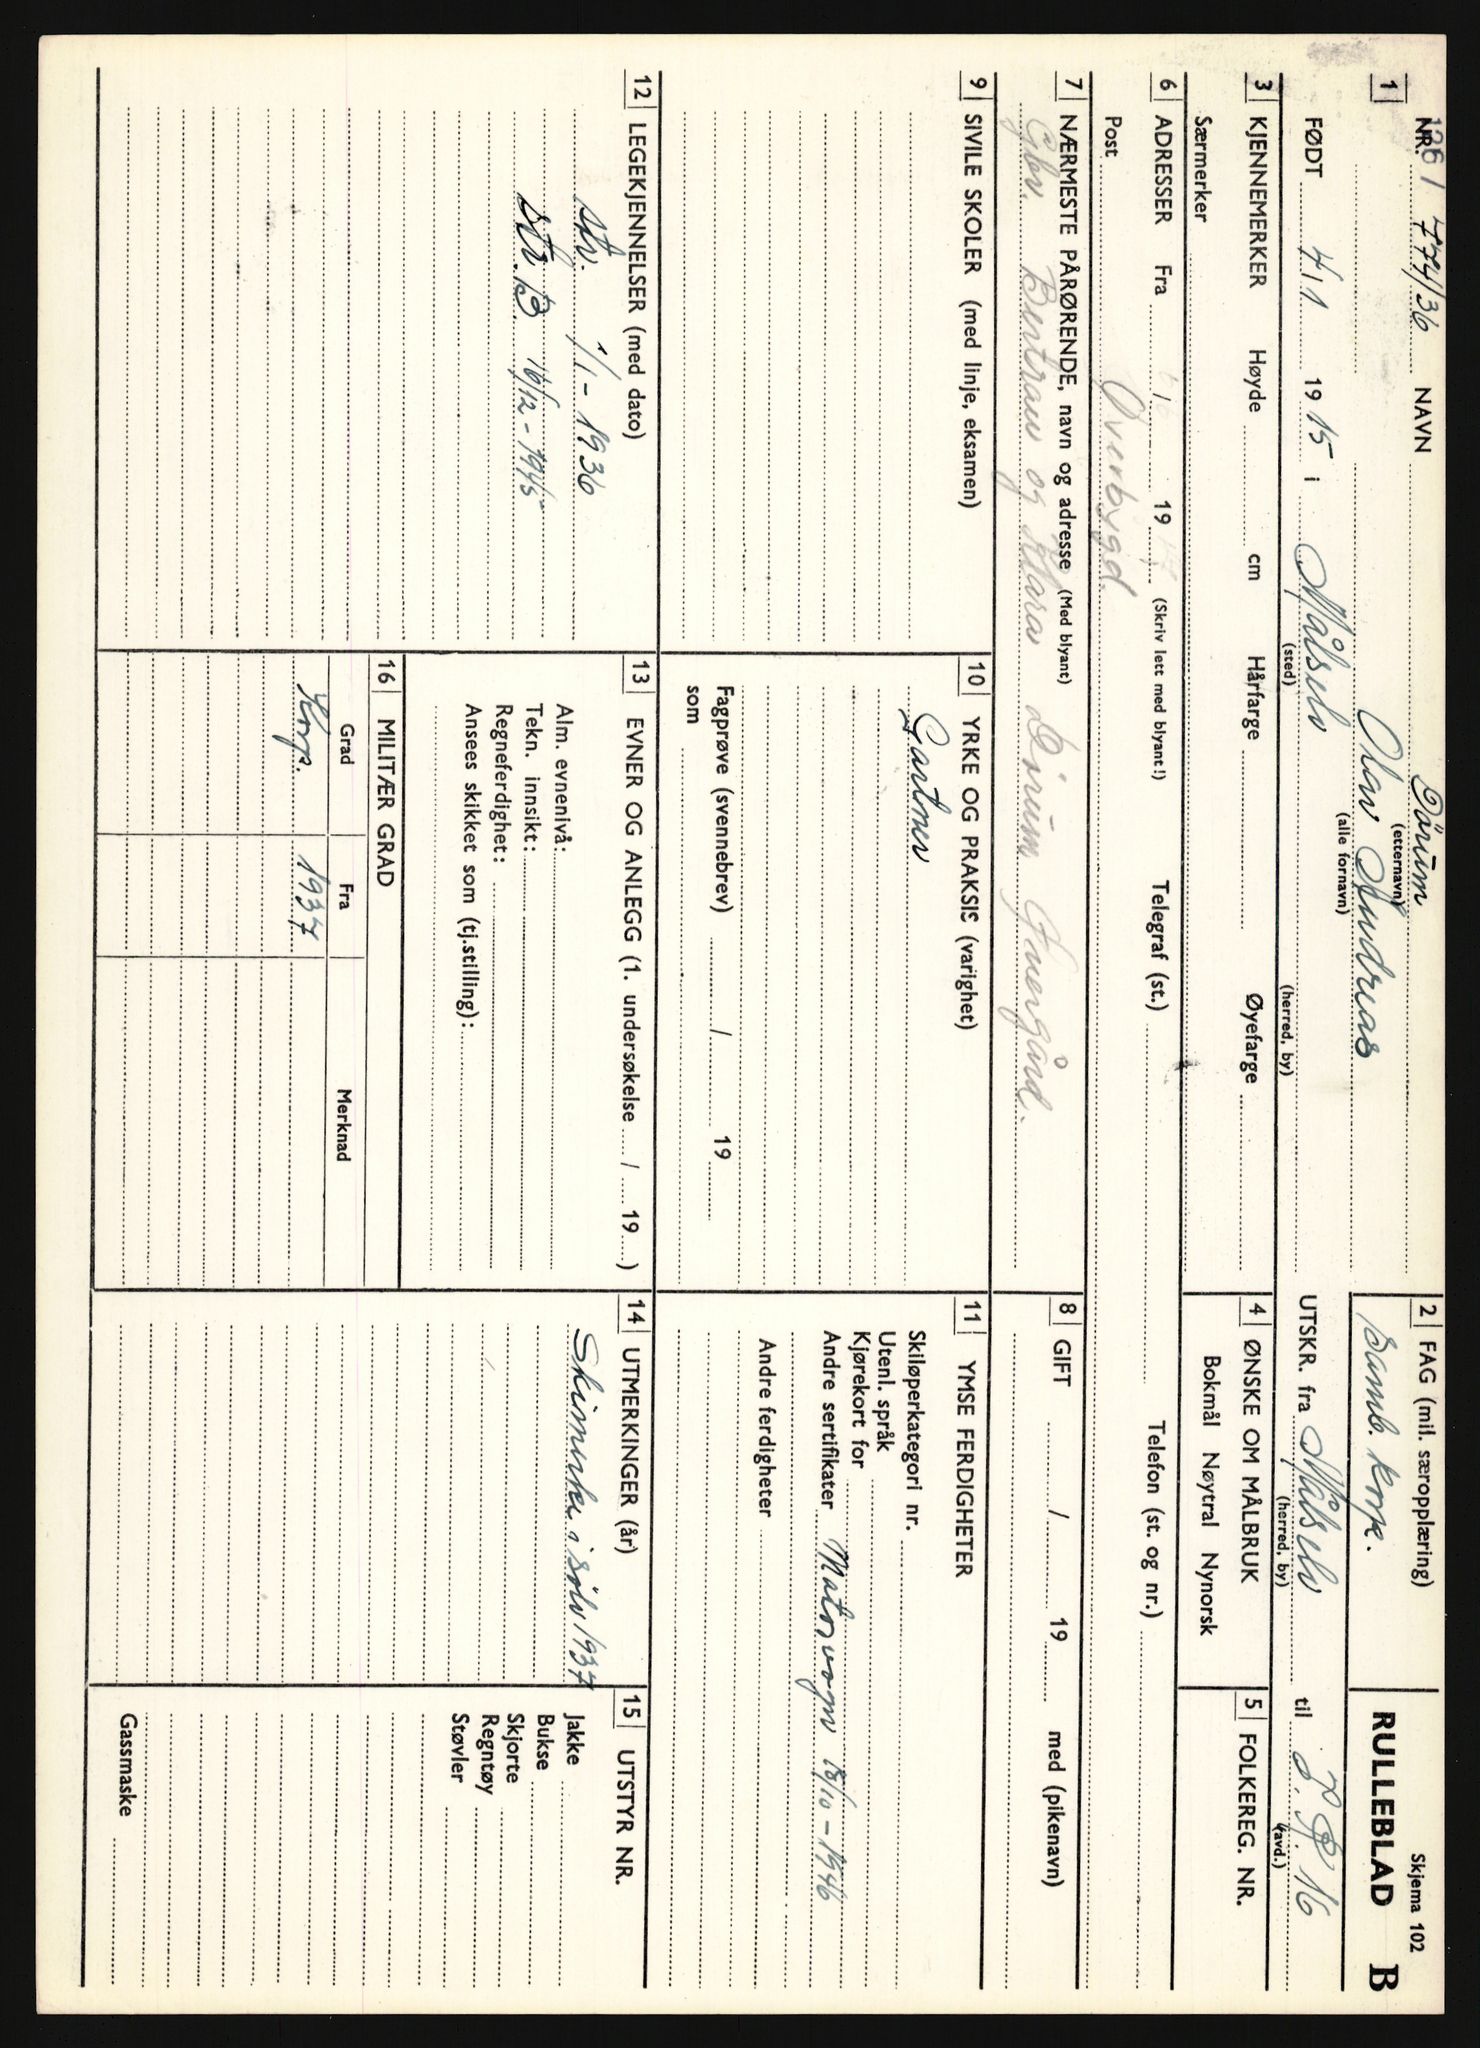 Skjema 102
RULLEBLAD B
1261
1 NR. 774/36 NAVN Dørum
(etternavn)
Olav Andreas
(alle fornavn)
2 FAG (mil. særopplæring)
Samb. korp.
FØDT 4/1 1915 i Målselv
(sted) (herred, by)
UTSKR. fra Målselv til I.R. 16
(herred, by) (avd.)
3 KJENNEMERKER Høyde cm Hårfarge Øyefarge
Særmerker
4 ØNSKE OM MÅLBRUK
Bokmål Nøytral Nynorsk
5 FOLKEREG. NR.
6 ADRESSER Fra / 19 (Skriv lett med blyant!) Telegraf (st.) Telefon (st. og nr.)
Post Øverbygd.
7 NÆRMESTE PÅRØRENDE, navn og adresse (Med blyant)
Gbr. Bertrau og Klara Dørum
8 GIFT / 19 med (pikenavn)
9 SIVILE SKOLER (med linje, eksamen)
10 YRKE OG PRAKSIS (varighet)
Gartner
Fagprøve (svennebrev) / 19
som
11 YMSE FERDIGHETER
Skiløperkategori nr.
Utenl. språk
Kjørekort for
Andre sertifikater Motorvogn 18/10-1946
Andre ferdigheter
12 LEGEKJENNELSER (med dato)
stv. 1/1-1936
str. B 16/12-1945
13 EVNER OG ANLEGG (1. undersøkelse / 19 )
Alm. evnenivå:
Tekn. innsikt:
Regneferdighet:
Ansees skikket som (tj.stilling):
14 UTMERKINGER (år)
Skimerke i sølv 1937
15 UTSTYR NR.
Jakke
Bukse
Skjorte
Regntøy
Støvler
Gassmaske
16 MILITÆR GRAD
Grad Fra Merknad
Korp. 1937